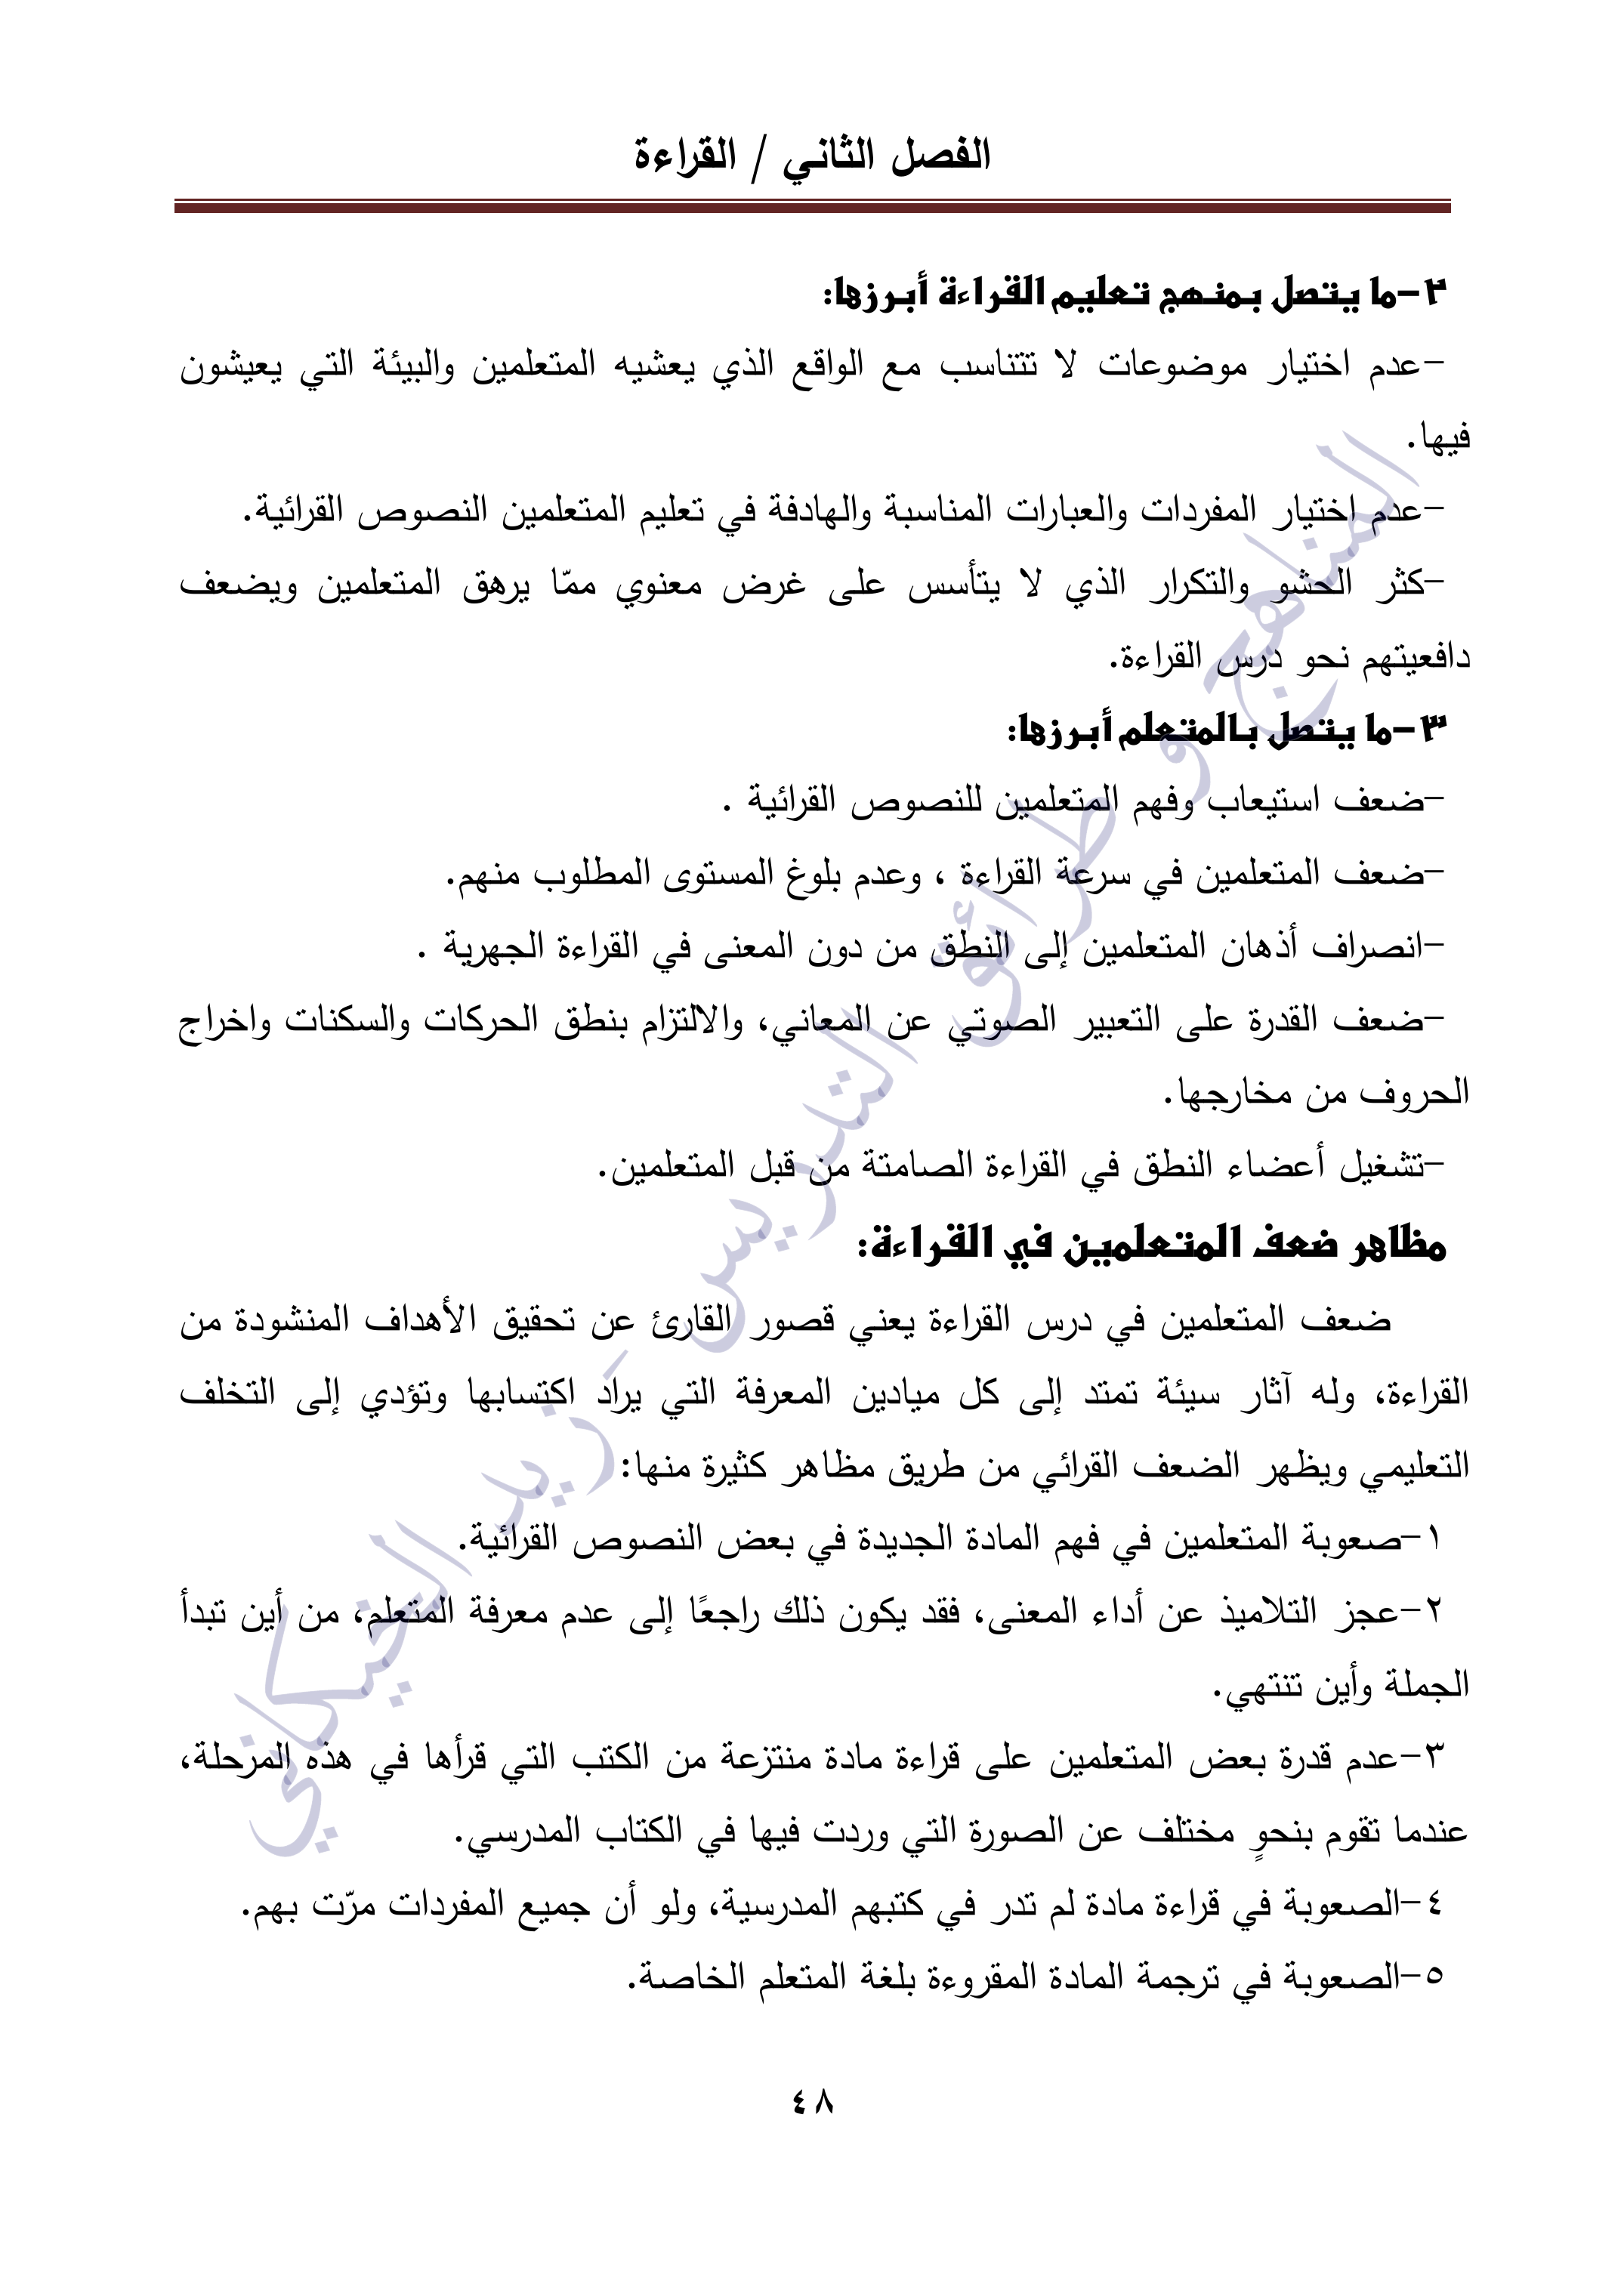 الفصل الثاني / القراءة
٢-ما يتصل بمنهج تعليم القراءة أبرزها:
-عدم اختيار موضوعات لا تتناسب مع الواقع الذي يعشيه المتعلمين والبيئة التي يعيشون
فيها.
-عدم اختيار المفردات والعبارات المناسبة والهادفة في تعليم المتعلمين النصوص القرائية.
-كثر الحشو والتكرار الذي لا يتأسس على غرض معنوي ممّا يرهق المتعلمين ويضعف
دافعيتهم نحو درس القراءة.
٣-ما يتصل بالمتعلم أبرزها:
-ضعف استيعاب وفهم المتعلمين للنصوص القرائية .
-ضعف المتعلمين في سرعة القراءة ، وعدم بلوغ المستوى المطلوب منهم.
-انصراف أذهان المتعلمين إلى النطق من دون المعنى في القراءة الجهرية .
-ضعف القدرة على التعبير الصوتي عن المعاني، والالتزام بنطق الحركات والسكنات واخراج
الحروف من مخارجها.
-تشغيل أعضاء النطق في القراءة الصامتة من قبل المتعلمين.
مظاهر ضعف المتعلمين في القراءة:
ضعف المتعلمين في درس القراءة يعني قصور القارئ عن تحقيق الأهداف المنشودة من
القراءة، وله آثار سيئة تمتد إلى كل ميادين المعرفة التي يراد اكتسابها وتؤدي إلى التخلف
التعليمي ويظهر الضعف القرائي من طريق مظاهر كثيرة منها:
١-صعوبة المتعلمين في فهم المادة الجديدة في بعض النصوص القرائية.
٢-عجز التلاميذ عن أداء المعنى، فقد يكون ذلك راجعًا إلى عدم معرفة المتعلم، من أين تبدأ
الجملة وأين تنتهي.
٣-عدم قدرة بعض المتعلمين على قراءة مادة منتزعة من الكتب التي قرأها في هذه المرحلة،
عندما تقوم بنحوٍ مختلف عن الصورة التي وردت فيها في الكتاب المدرسي.
٤-الصعوبة في قراءة مادة لم تدر في كتبهم المدرسية، ولو أن جميع المفردات مرّت بهم.
٥-الصعوبة في ترجمة المادة المقروءة بلغة المتعلم الخاصة.
٤٨
المناهج و طرائق التدريس - زيد الخيكاني